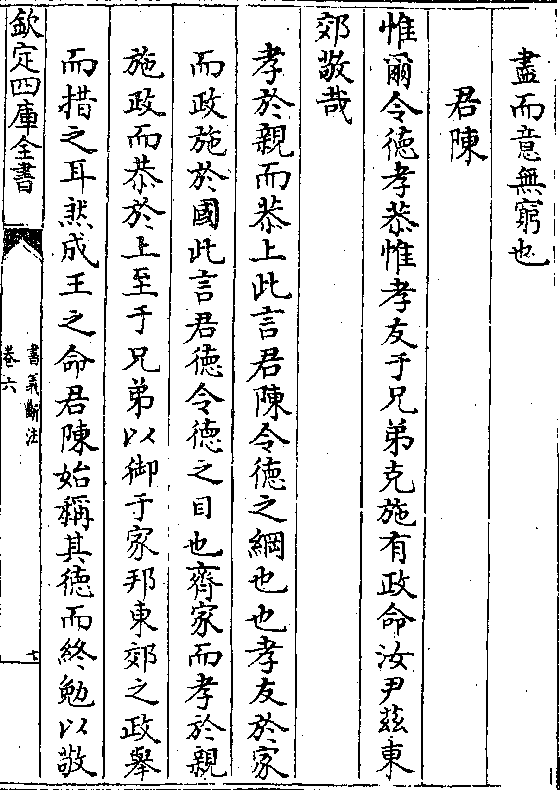 盡而意無窮也
君陳
惟爾令德孝恭惟孝友于兄弟克施有政命汝尹茲東
郊敬哉
孝於親而恭上此言君陳令德之綱也也孝友於家
而政施於國此言君德令德之目也齊家而孝於親
施政而恭於上至于兄弟以御于家邦東郊之政舉
而措之耳然成王之命君陳始稱其德而終勉以敬
欽定四庫全書
書義斷法
卷六
七